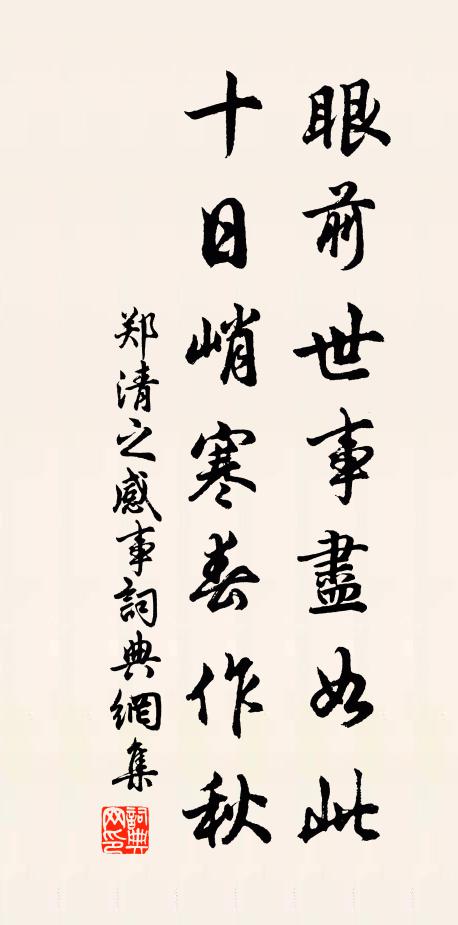 眼前世事盡如此
十日峭寒春作秋
郑清之感事詞典網集
詞典网印